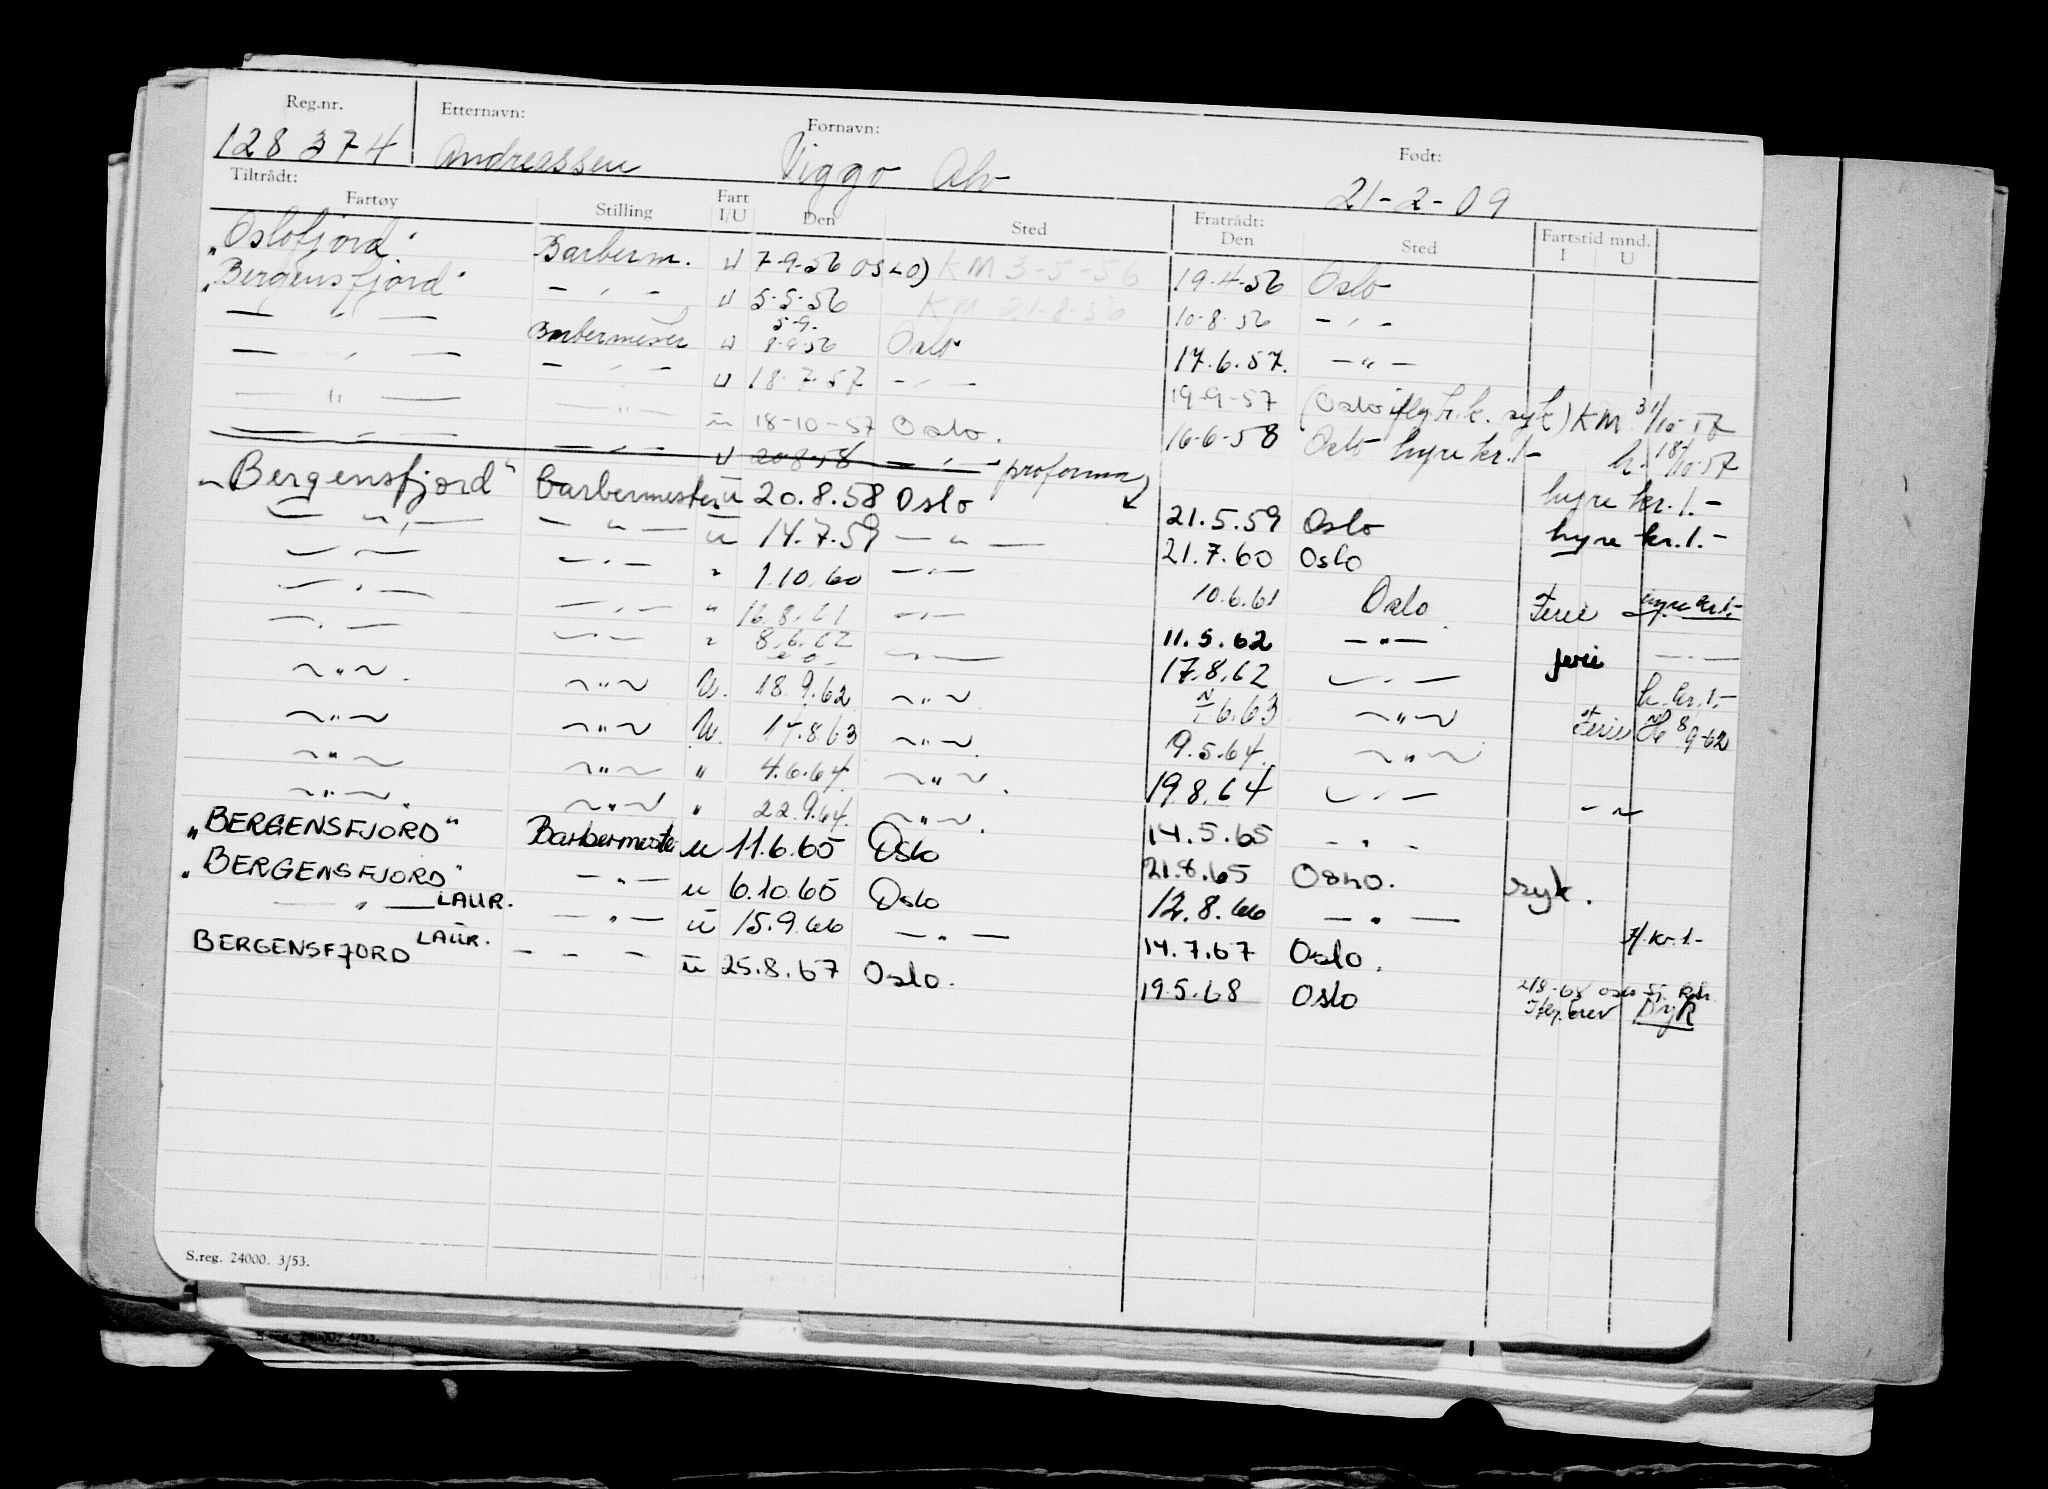 Reg.nr. Etternavn: Fornavn: Født:
128374 Andreassen Viggo Alv 21-2-09
Tiltrådt: Fratrådt:
Fartøy Stilling Fart I/U Den Sted Den Sted Fartstid mnd. I U
"Oslofjord" Barberm. U 7-9-56 OSLO) KM 3-5-56 19-4-56 Oslo
"Bergensfjord" — " — U 5-5-56 KM 21-8-56 10-8-56 — " —
— " — Barbermester U 5-9- 8-9-56 Oslo 17.6.57. — " —
— " — — " — U 18.7.57 — " — 19-9-57 (Oslo syk) KM 31/10-57
— " — — " — u 18-10-57 Oslo. 16-6-58 Oslo hyre kr. 1- h. 18/10-57
— " — — " — U 20 8-58 — " — proforma
"Bergensfjord" barbermester u 20.8.58 Oslo 21.5.59 Oslo hyre kr. 1.-
— " — — " — u 14.7.59 — " — 21.7.60 Oslo hyre kr. 1.-
— " — — " — " 1.10.60 — " — 10.6.61 Oslo Ferie hyre kr. 1.-
— " — — " — " 16.8.61 — " — 11.5.62 — " — ferie — " —
— " — — " — " 8.6.62 — " — 17.8.62 — " — h. kr. 1.-
— " — — " — U. 18.9.62 — " — 6.63 — " — Ferie 8/9-62
— " — — " — U. 17.8.63 — " — 9.5.64. — " —
— " — — " — " 4.6.64. — " — 19.8.64 — " — — " —
— " — — " — " 22.9.64. — " — 14.5.65 — " —
"BERGENSFJORD" Barbermester u 11.6.65 Oslo 21.8.65 OSLO. syk.
"BERGENSFJORD" — " — u 6.10.65 Oslo 12.8.66 — " —
— " — LAUR. — " — u 15.9.66 — " — 14.7.67 Oslo. H. kr. 1.-
BERGENSFJORD LAUR. — " — u 25.8.67 Oslo. 19.5.68 Oslo 2/8-68 Oslo
S.reg. 24000. 3/53.